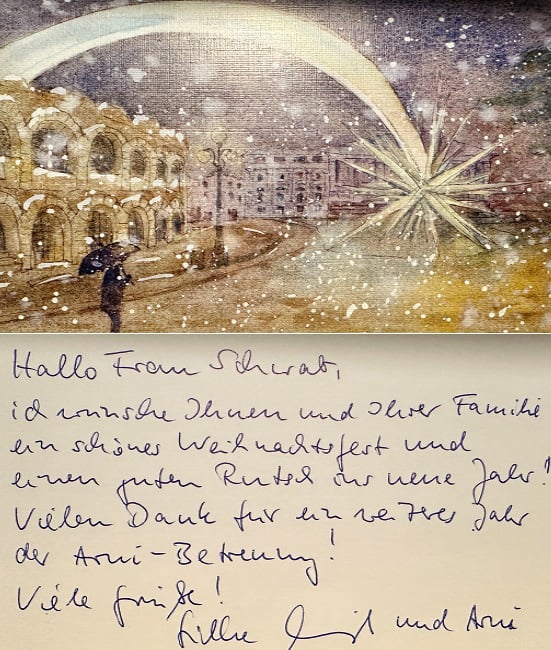 Hallo Frau Schwab,
ich wünsche Ihnen und Ihrer Familie
ein schönes Weihnachtsfest und
einen guten Rutsch ins neue Jahr!
Vielen Dank für ein weiteres Jahr
der Arni-Betreuung!
Viele Grüße!
und Arni